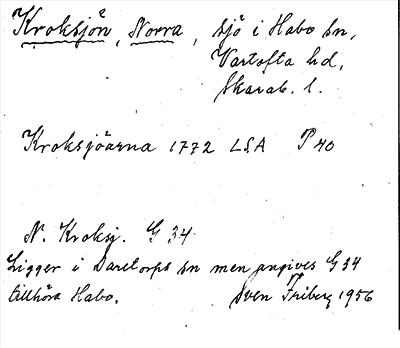 Kroksjön, Norra, sjö i Habo sn,
Vartofta hd,
Skarab. l.
Kroksjöarna 1772 LSA P 40
N. Kroksj. G 34
Ligger i Daretorps sn men angives G 34
tillhöra Habo.
Sven Friberg 1956